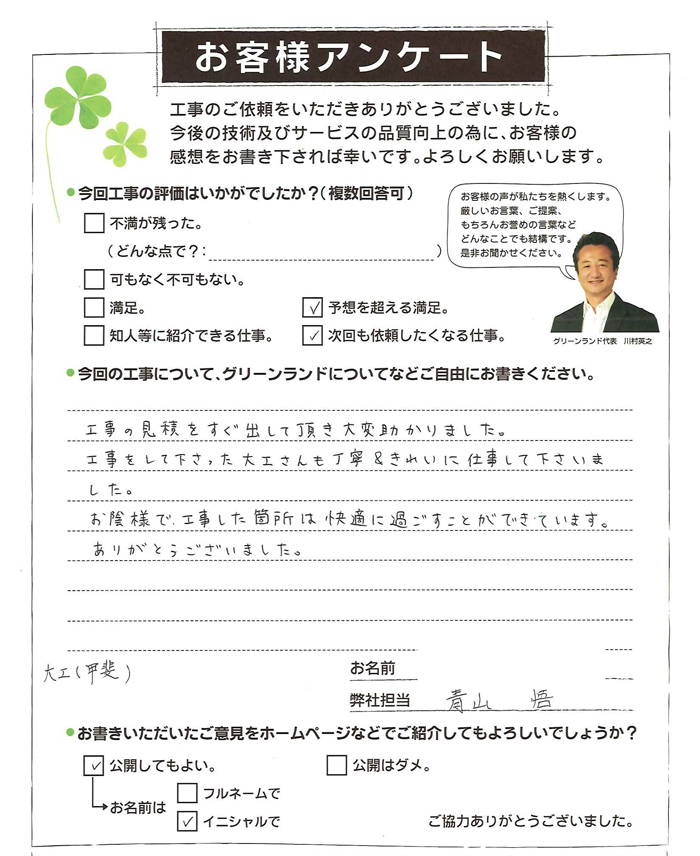 お客様アンケート
工事のご依頼をいただきありがとうございました。
今後の技術及びサービスの品質向上の為に、お客様の
感想をお書き下されば幸いです。よろしくお願いします。
●今回工事の評価はいかがでしたか？(複数回答可)
お客様の声が私たちを熱くします。
厳しいお言葉、ご提案、
もちろんお誉めの言葉など
どんなことでも結構です。
是非お聞かせください。
不満が残った。
(どんな点で？: )
可もなく不可もない。
満足。 ✓ 予想を超える満足。
知人等に紹介できる仕事。 ✓ 次回も依頼したくなる仕事。
グリーンランド代表 川村英之
●今回の工事について、グリーンランドについてなどご自由にお書きください。
工事の見積をすぐ出して頂き大変助かりました。
工事をして下さった大工さんも丁寧&きれいに仕事して下さいま
した。
お陰様で、工事した箇所は快適に過ごすことができています。
ありがとうございました。
大工(甲斐)
お名前
弊社担当 青山 悟
●お書きいただいたご意見をホームページなどでご紹介してもよろしいでしょうか？
✓ 公開してもよい。 公開はダメ。
お名前は フルネームで
✓ イニシャルで
ご協力ありがとうございました。